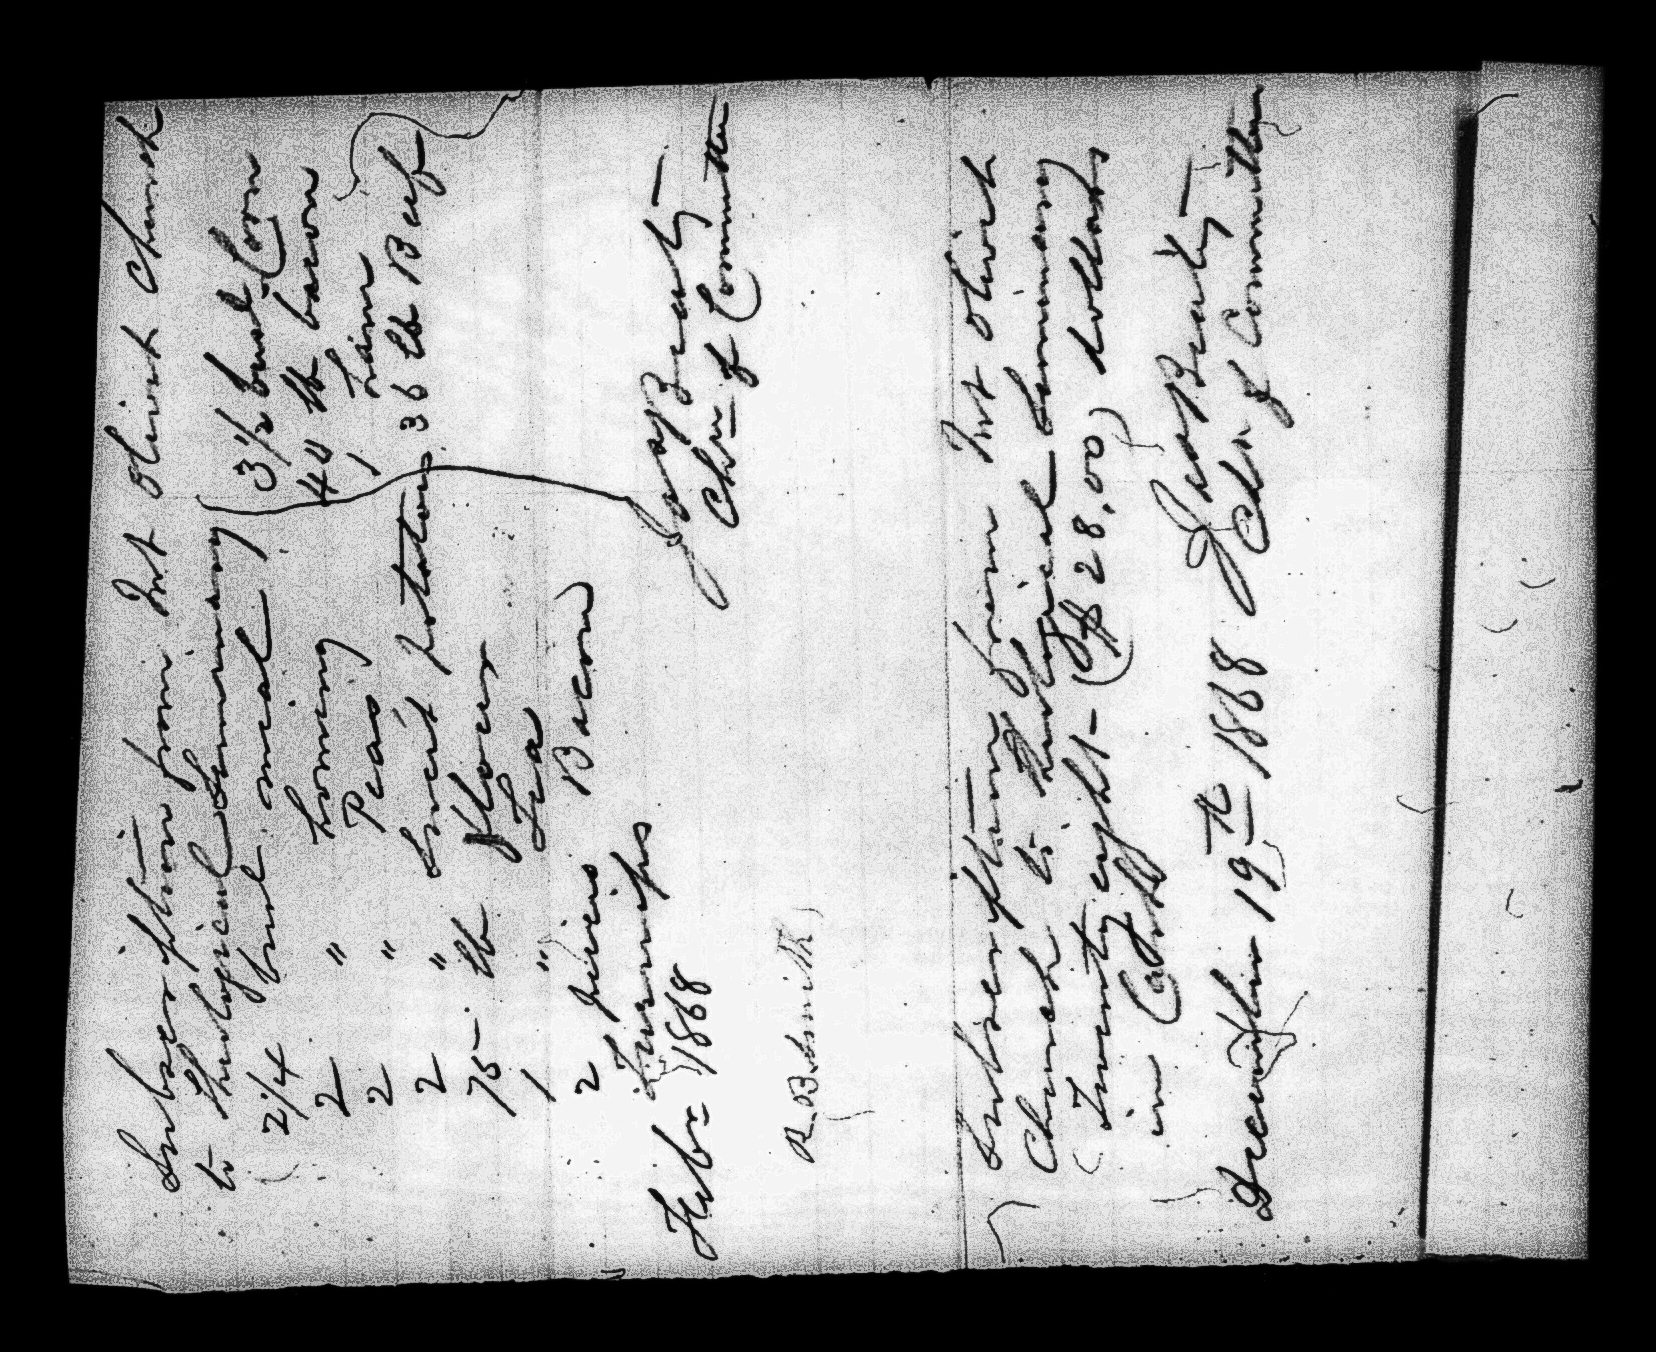 Subscription from Mt Olivet Church
to Theological Seminary
2/4 bush meal 3 1/2 bush Corn
2 " hominy 44 lb bacon
2 " Peas 1 ham
2 " Sweet potatoes 36 lb Beef
75 lb Flour
1 " Tea
2 pieces Bacon
Turnips
Feby 1868 Jas Beaty
Chm of Committee
R. B. Smith
Subscription from Mt Olivet
Church to Theological Seminary
Twenty eight - ($28,00) dollars
in
December 19th 1868 Jas Beaty
Chn of Committee